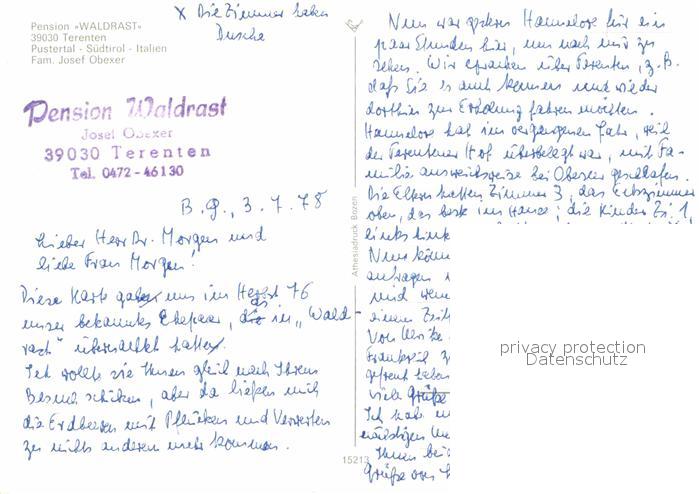 Pension »WALDRAST«
39030 Terenten
Pustertal - Südtirol - Italien
Fam. Josef Obexer
x Die Zimmer haben
Dusche
Pension Waldrast
Josef Obexer
39030 Terenten
Tel. 0472-46130
B.G., 3.7.78
Lieber Herr Dr. Morgen und
liebe Frau Morgen!
Diese Karte gaben uns im Herbst 76
unser bekanntes Ehepaar, die in „Wald-
rast" übernachtet hatten.
Ich wollte sie Ihnen gleich nach Ihrem
Besuch schicken, aber da ließen mich
die Erdbeeren mit Pflücken und Verwerten
zu nichts anderem mehr kommen.
Athesiadruck Bozen
15213
Nun war gestern Hannelore für ein
paar Stunden hier, um nach mir zu
sehen. Wir sprachen über Terenten, z.B.
daß Sie es auch kennen und wieder
dorthin zur Erholung fahren möchten.
Hannelore hat im vergangenen Jahr, weil
der Terentener Hof überbelegt war, mit Fa-
milie ausweichsweise bei Obexer geschlafen.
Die Eltern hatten Zimmer 3, das Eckzimmer
oben, das beste im Hause; die Kinder Zi. 1,
links
Nun könn
anfragen
und wenn
einen Zeit
Von Ulrike
Frankreich
gefreut haben
viele Grüße
Ich hab
nächsten
Ihnen bei
Grüße von
privacy protection
Datenschutz